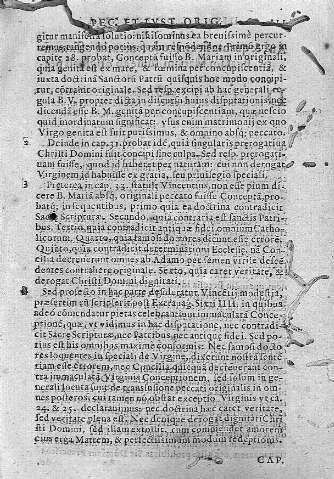 PEC. ET IVST. ORIG.
gitur manifesta solutio: nihilominus ea breuissimè percur-
capite 28. probat, Concepta fuisse B. Mariam in originali,
quia genita est ex mare, & fœmina per concupiscentiã, &
iuxta doctrina Sanctorũ Patrũ quisquis hoc modo concipi-
tur, contrahit originale. Sed resp. excipi ab hac generali re-
gula B. V. propter dicta in discursu huius disputationis; nec
dicendã esse B. M. genitã per concupiscentiam, quæ
quid inordinatum significat: vsus enim matrimonij ex quo
Virgo genita est fuit purissimus, & omnino absq; peccato.
2 Deinde in cap. 31. probat idẽ, quia singularis prerogatiua
Christi Domini fuit concipi sine culpa. Sed resp. prerogati-
uam fuisse, quod id haberet per naturam: cui non derogat
Virginem id habuisse ex gratia, seu priuilegio speciali.
3 Preterea in cap. 32. statuit Vincentius non esse pium di-
cere B. Mariã absq; originali peccato fuisse Conceptã. pro-
batq; sic; quintus, primo quia ea doctrina contradicit
Sacræ Scripturæ. Secundo, quia contraria est sanctis Patri-
bus. Tertio, quia contradicit antiquæ fidei omnium Catho-
licorum. Quarto, quia famosi doctores dicunt esse errorẽ.
Quinto, quia contradicit determinationi Ecclesię, nã Con-
cilia decreuerunt omnes ab Adamo per semen virile descẽ-
dentes contrahere originale. Sexto, quia caret veritate, &
derogat Christi Domini dignitati.
Sed profecto in hac parte desideratur Vincẽtij modestia,
præsertim cùm scripserit post Extrauag. Sixti IIII. in quibus
adeo cõmendatur pietas celebrantium immaculatã Conce-
ptionẽ, quæ, vt vidimus in hac disputatione, nec contradi-
cit Sacræ Scripturæ, nec Patribus, nec antiquæ fidei. Sed po-
tius est his omnibus maximè conformis. Nec famosi docto-
res loquentes in speciali de Virgine, dixerunt nostrã senten-
tiam esse errorem, nec Concilia quicquã decreuerunt con-
tra immaculatã Virginis Conceptionem, sed solum in ge-
nerali locuta sunt de transfusione peccati originalis in om-
nes posteros, cui tamen nõ obstat exceptio Virginis vt ca.
24. & 25. declarauimus, nec doctrina hæc caret veritate,
sed veritate plena est. Nec denique derogat dignitati Chri-
sti Domini, sed illam extollit, cum amorem
eius erga Matrem, & perfectissimum modum redeptionis.
CAP.